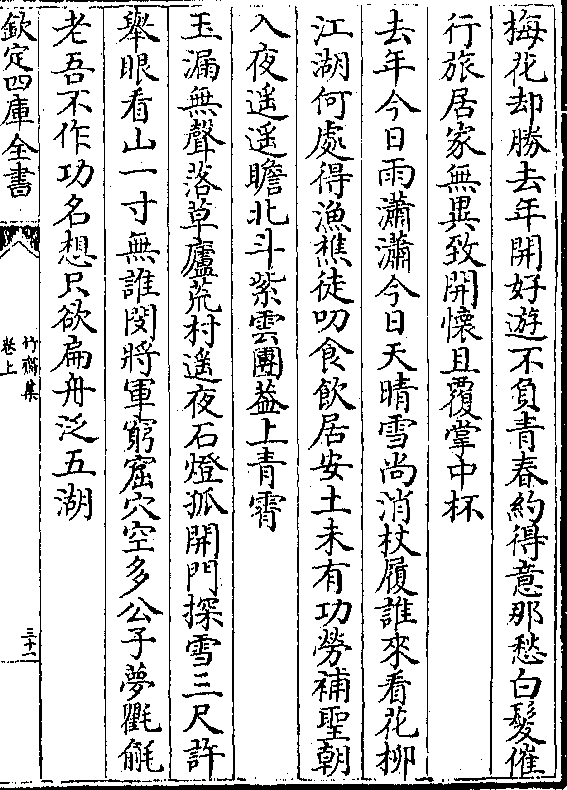 梅花却勝去年開好遊不負青春約得意那愁白髮催
行旅居家無異致開懷且覆掌中杯
去年今日雨瀟瀟今日天晴雪尚消杖履誰來看花柳
江湖何處得漁樵徒叨食飲居安土未有功勞補聖朝
入夜遥遥瞻北斗紫雲團葢上青霄
玉漏無聲落草廬荒村遥夜石燈孤開門探雪三尺許
舉眼看山一寸無誰閔將軍窮窟穴空多公子夢氍毹
老吾不作功名想只欲扁舟泛五湖
欽定四庫全書
竹齋集
卷上
三十一